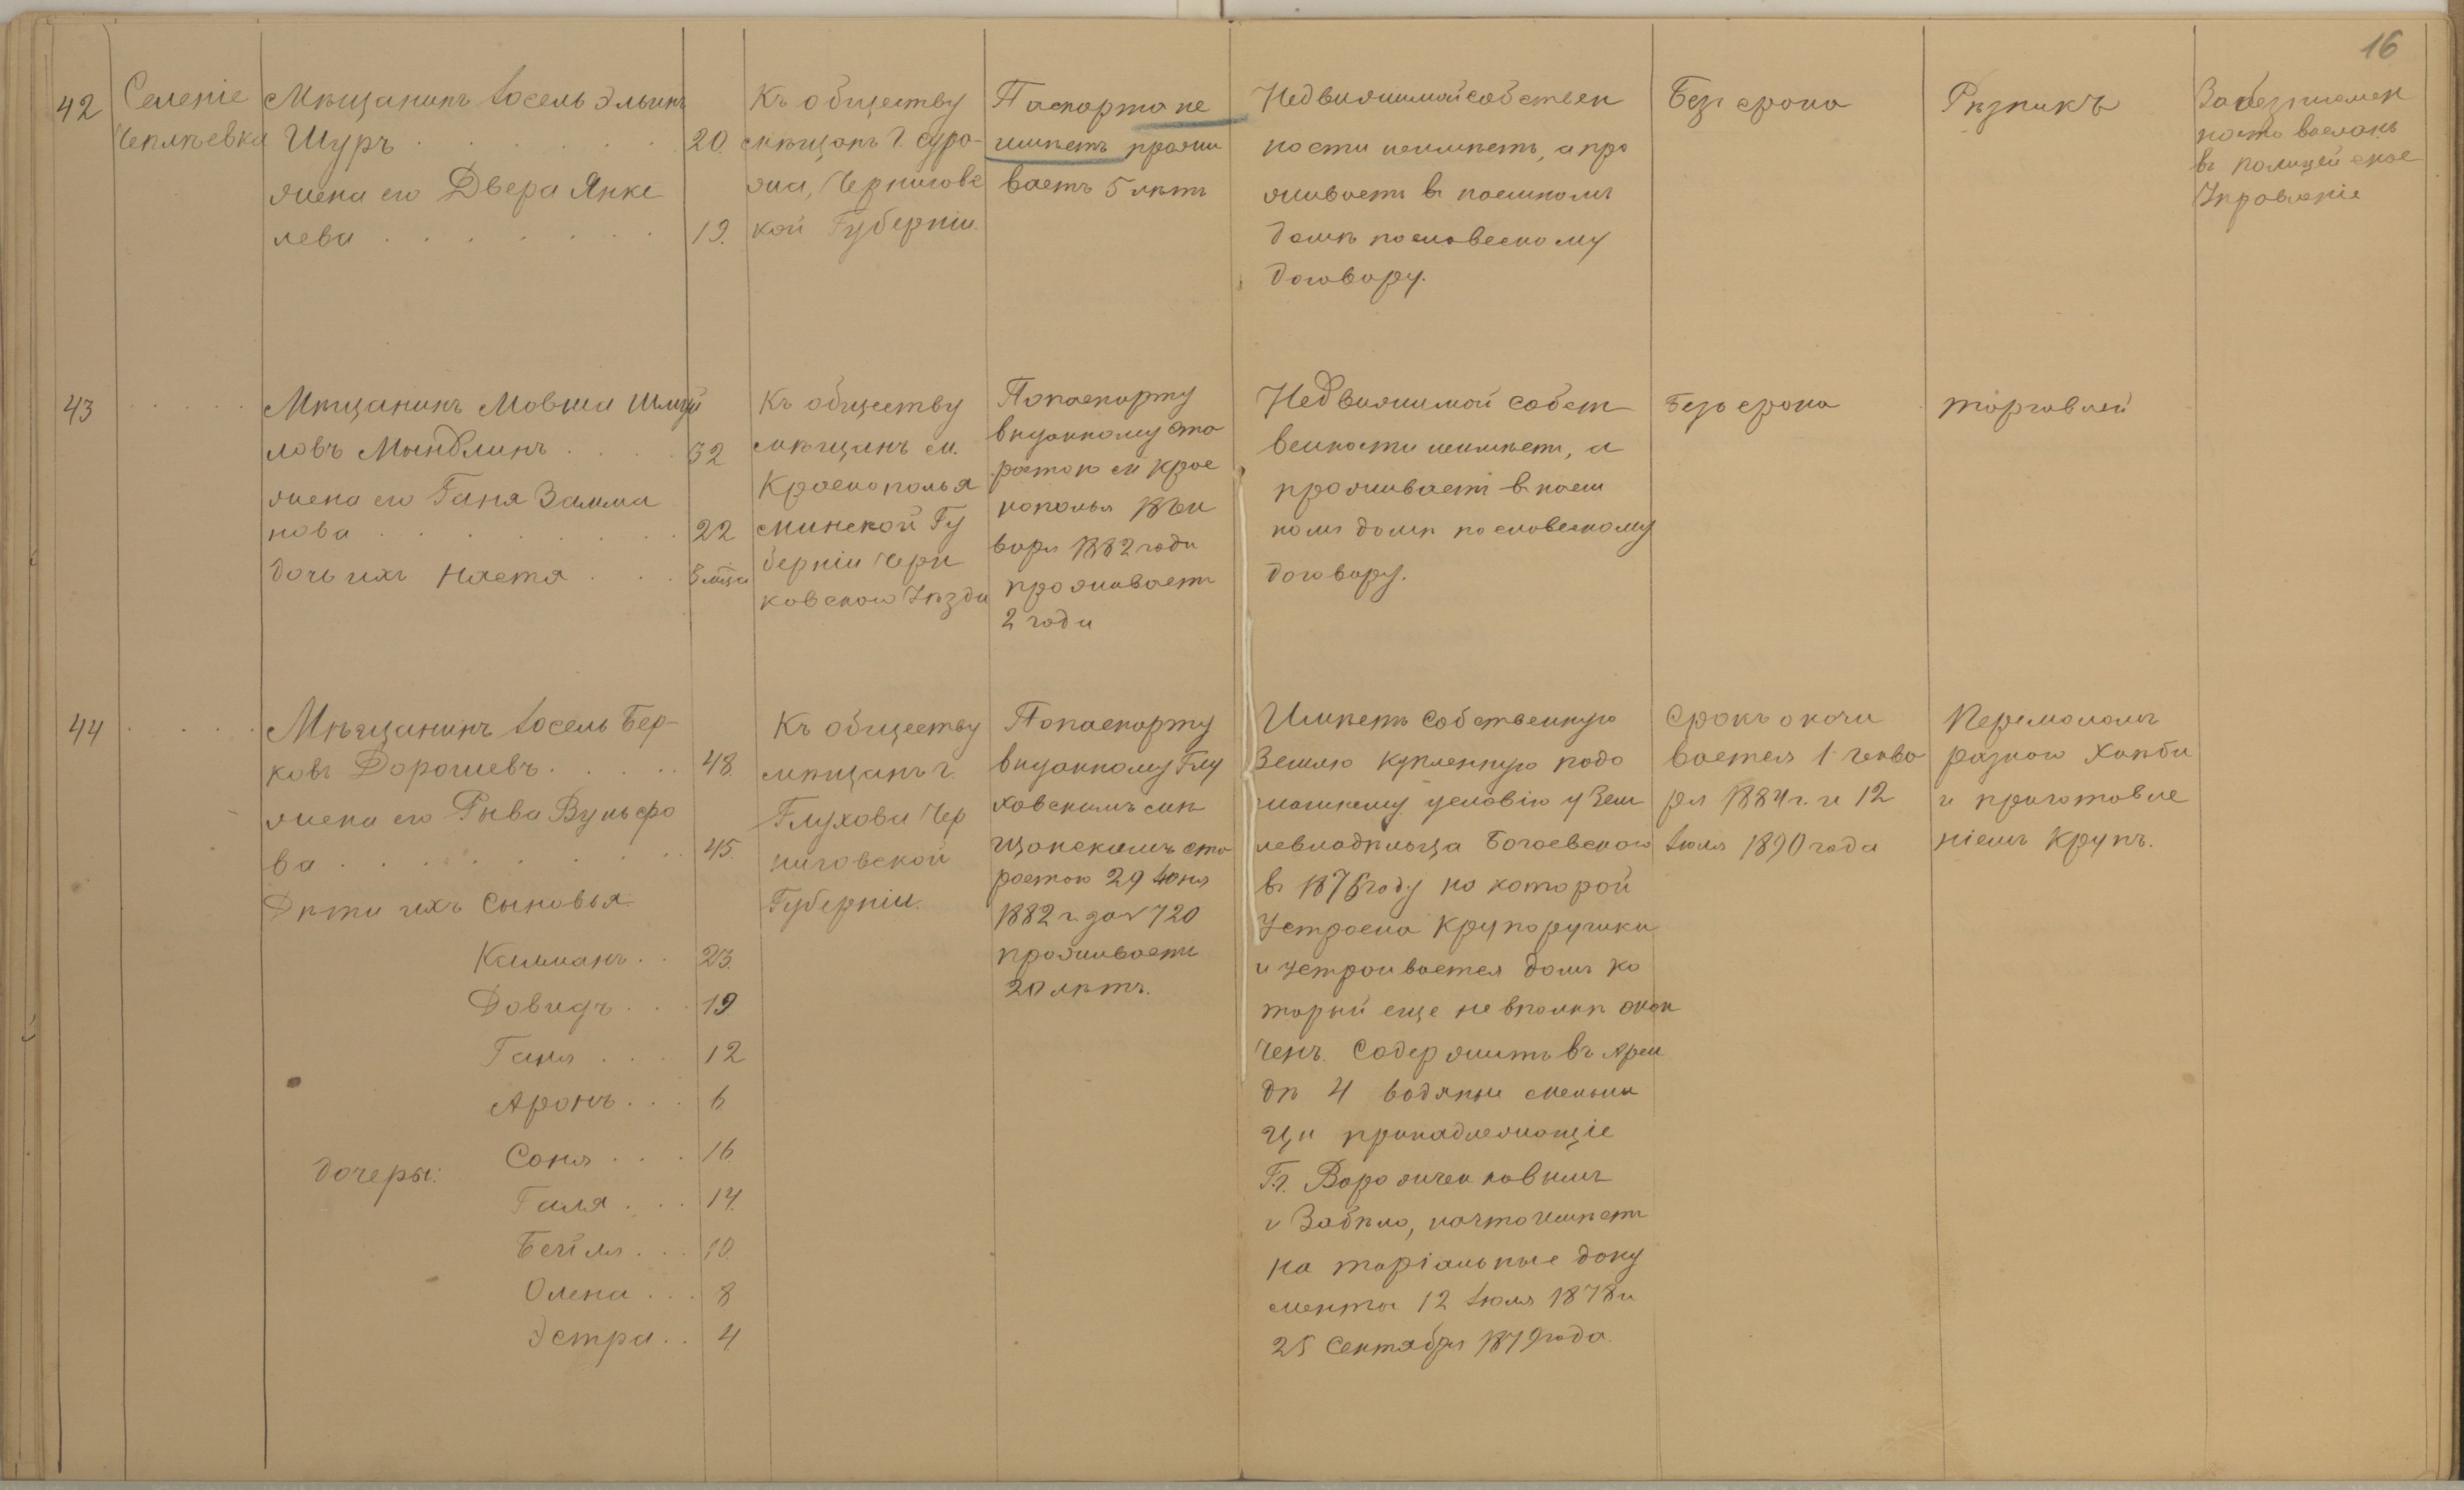 16
42
Селеніе
Чеплѣевка
Мѣщанинъ Іосель Элькинъ
Шуръ . . . . . . 20.
жена его Двера Янке
лева . . . . . . . 19.
Къ обществу
мѣщанъ г. Сура-
жа, Черниговс
кой Губерніи.
Паспорта не
имѣетъ прожи
ваетъ 5 лѣтъ
Недвижимой собствен
ности неимѣетъ, а про
живаетъ въ наемномъ
домѣ пословесному
договору.
Безъ срока
Рѣзникъ
За безписьмен
ность высланъ
въ полицейское
Управленіе
43
Мѣщанинъ Мовша Шмуй
ловъ Мындлинъ . . . . 32
жена его Ганя Залма
нова . . . . . . . 22
дочь ихъ Настя . . . 8 мѣся
Къ обществу
мѣщанъ м.
Краснополья
Минской Гу
берніи Чери
ковскаго Уѣзда
Попаспорту
выданному Ста
ростою м Крас
нополья 18 Ян
варя 1882 года
проживаетъ
2 года
Недвижимой собст
венности неимѣетъ, а
проживаетъ в наем
номъ домѣ пословесному
договору.
Безъ срока
торговлей
44
Мѣщанинъ Іосель Бер-
ковъ Дорошевъ . . . . . 48.
жена его Рива Вульфо
ва . . . . . . . . 45.
Дѣти ихъ сыновья
Калманъ . . 23.
Довидъ . . . 19
Ганя . . . 12
Аронъ . . . 6
дочеры: Соня . . . 16
Галя . . . 14.
Бейля . . . 10.
Олена . . . 8
Эстра . . 4
Къ обществу
мѣщанъ г.
Глухова Чер
ниговской
Губерніи.
Попаспорту
выданному Глу
ховскимъ мѣ
щанскимъ ста
ростою 29 Іюня
1882 г. за № 720
проживаетъ
20 лѣтъ.
Имѣетъ собственную
Землю купленную подо
машнему условію у Зем
левладѣльца Богаевскаго
въ 1876 году на которой
Устроена Крупорушка
и устроивается домъ ко
торый еще не вполнѣ окон
ченъ. Содержитъ въ Арен
дѣ 4 водяные мельни
цы принадлежащіе
Гг. Ворожченковымъ
и Забѣло, начто имѣетъ
на торіальные доку
мента 12 Іюля 1878 и
25 Сентября 1879 года
Срокъ окочи
вается 1 Генва
ря 1884 г. и 12
Іюля 1890 года
Перемоломъ
разнаго Хлѣба
и приготовле
ніемъ Крупъ.